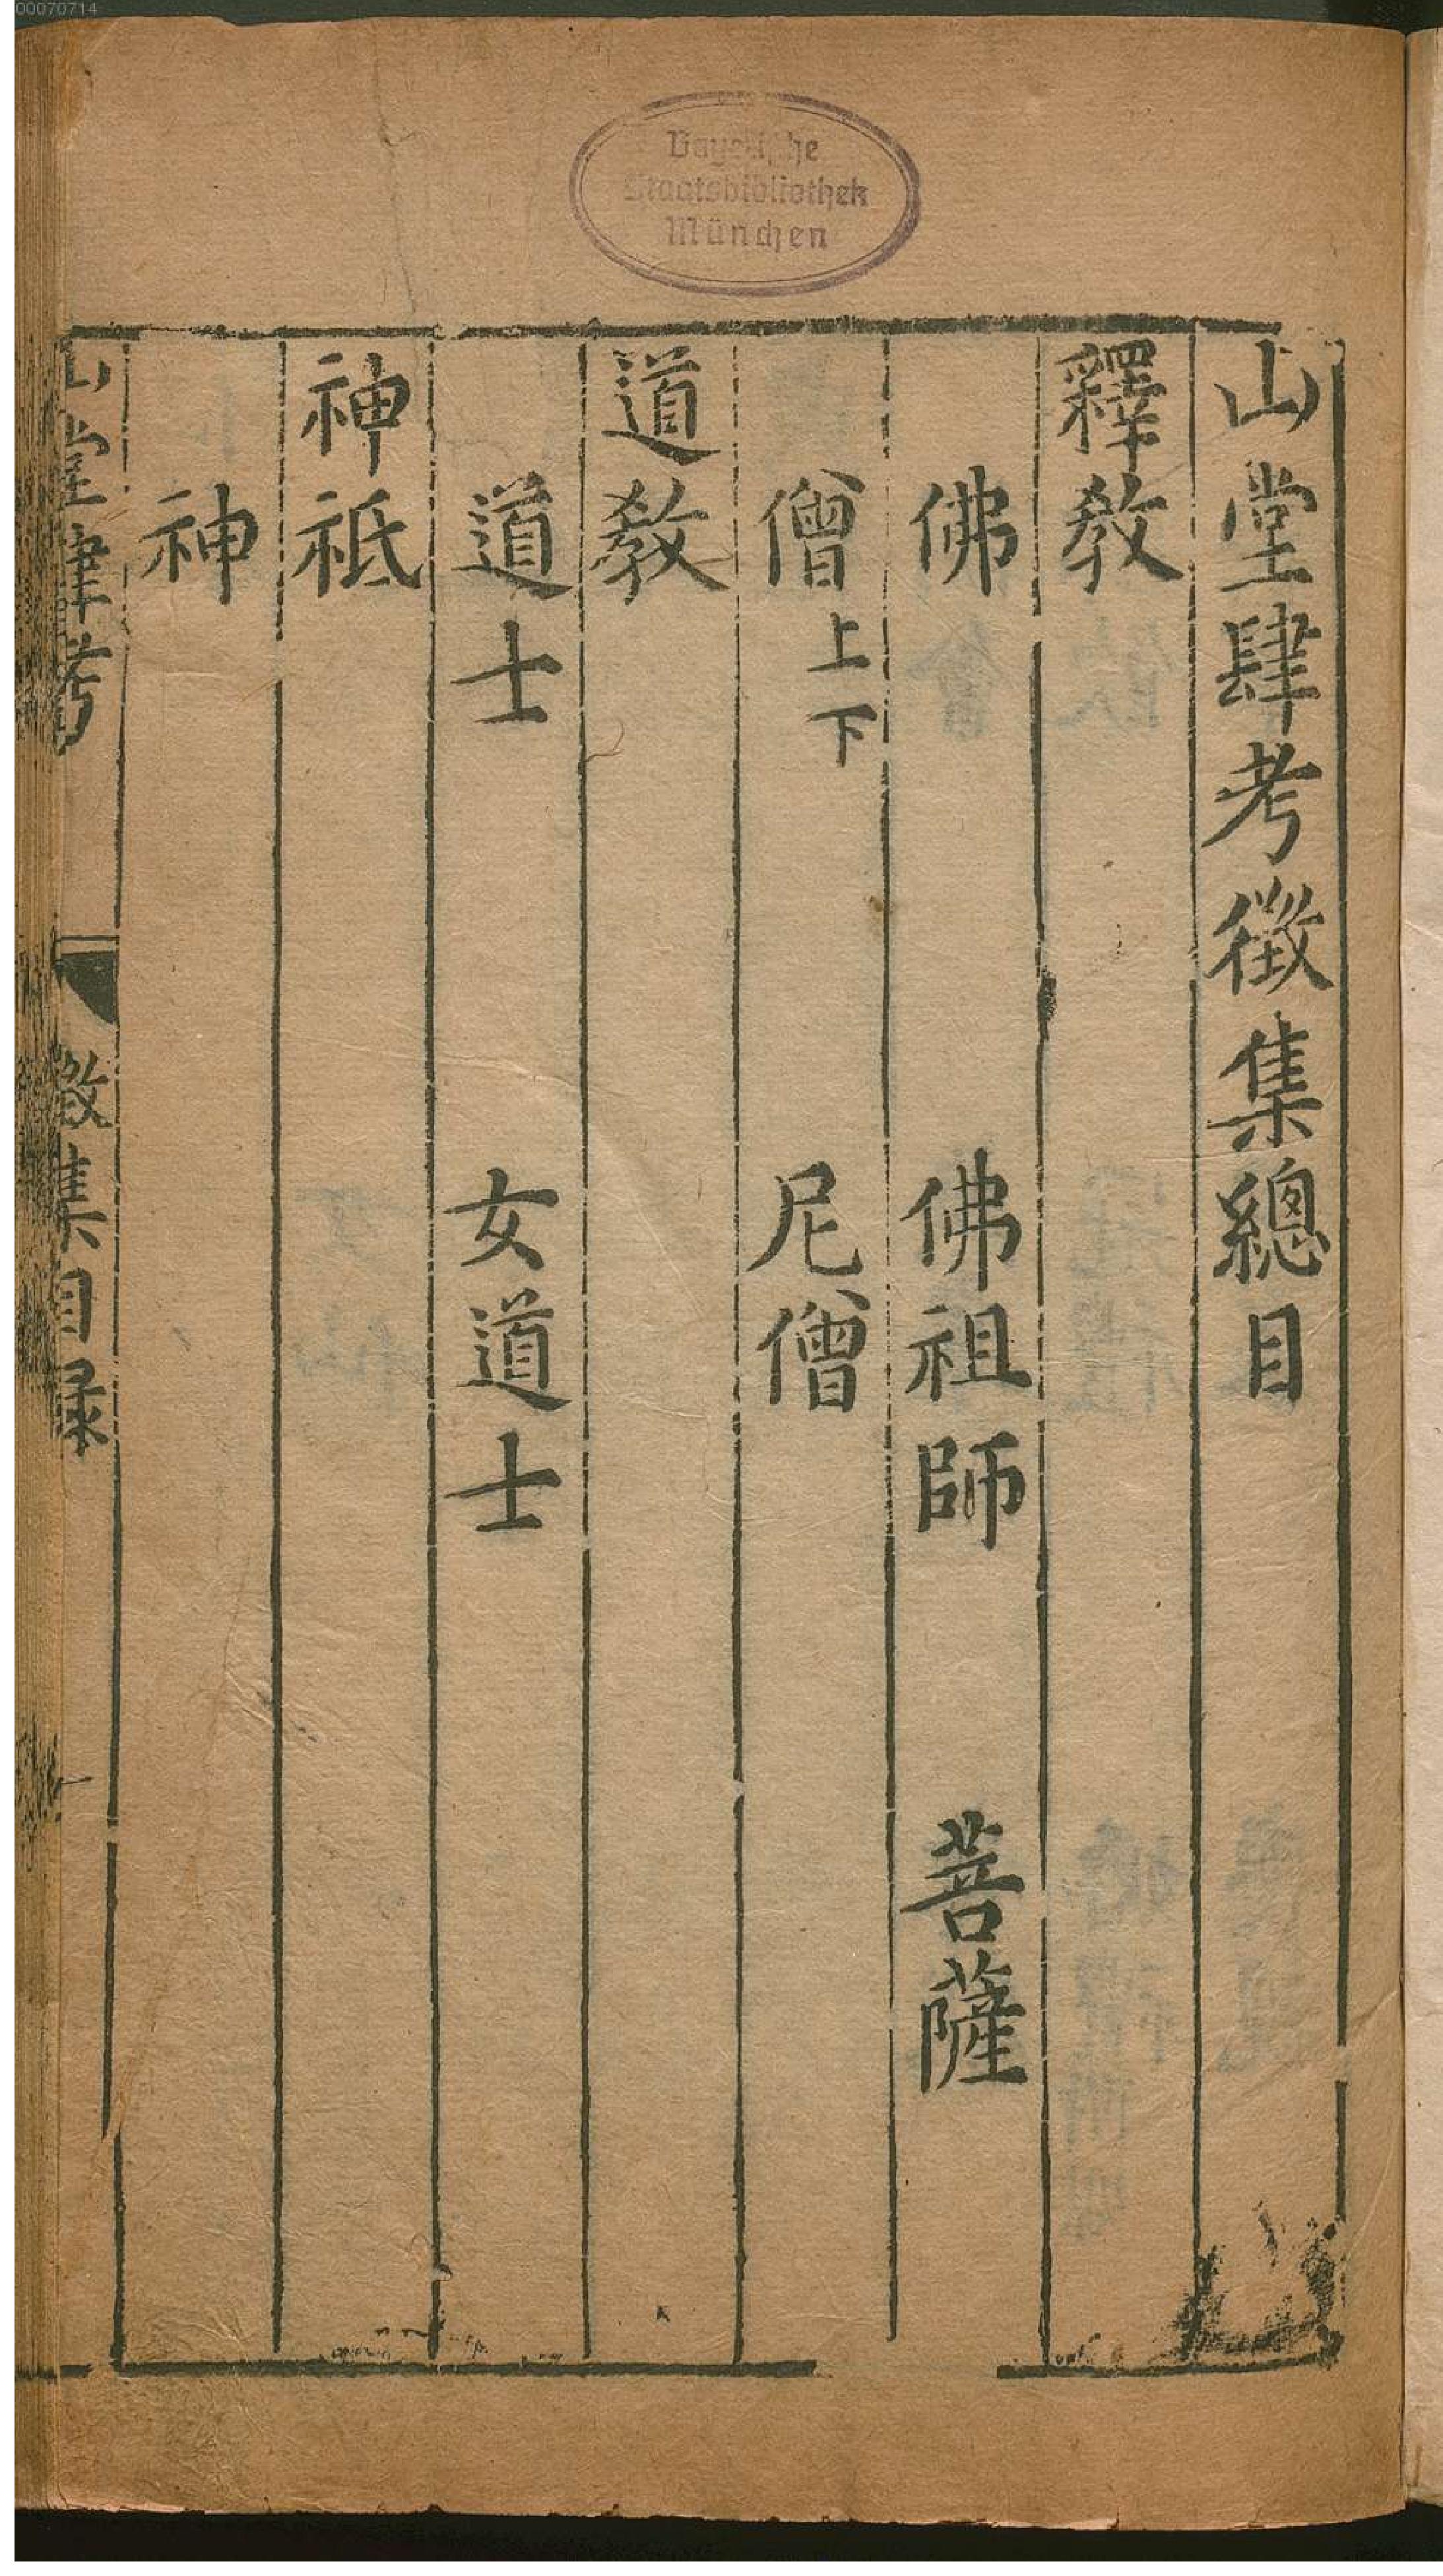 00070714
Bayerische
Staatsbibliothek
München
山堂肆考徵集總目
釋敎
佛　佛祖師　菩薩
僧上下　尼僧
道敎
道士　女道士
神祗
神
山堂肆考　徵集目錄　一